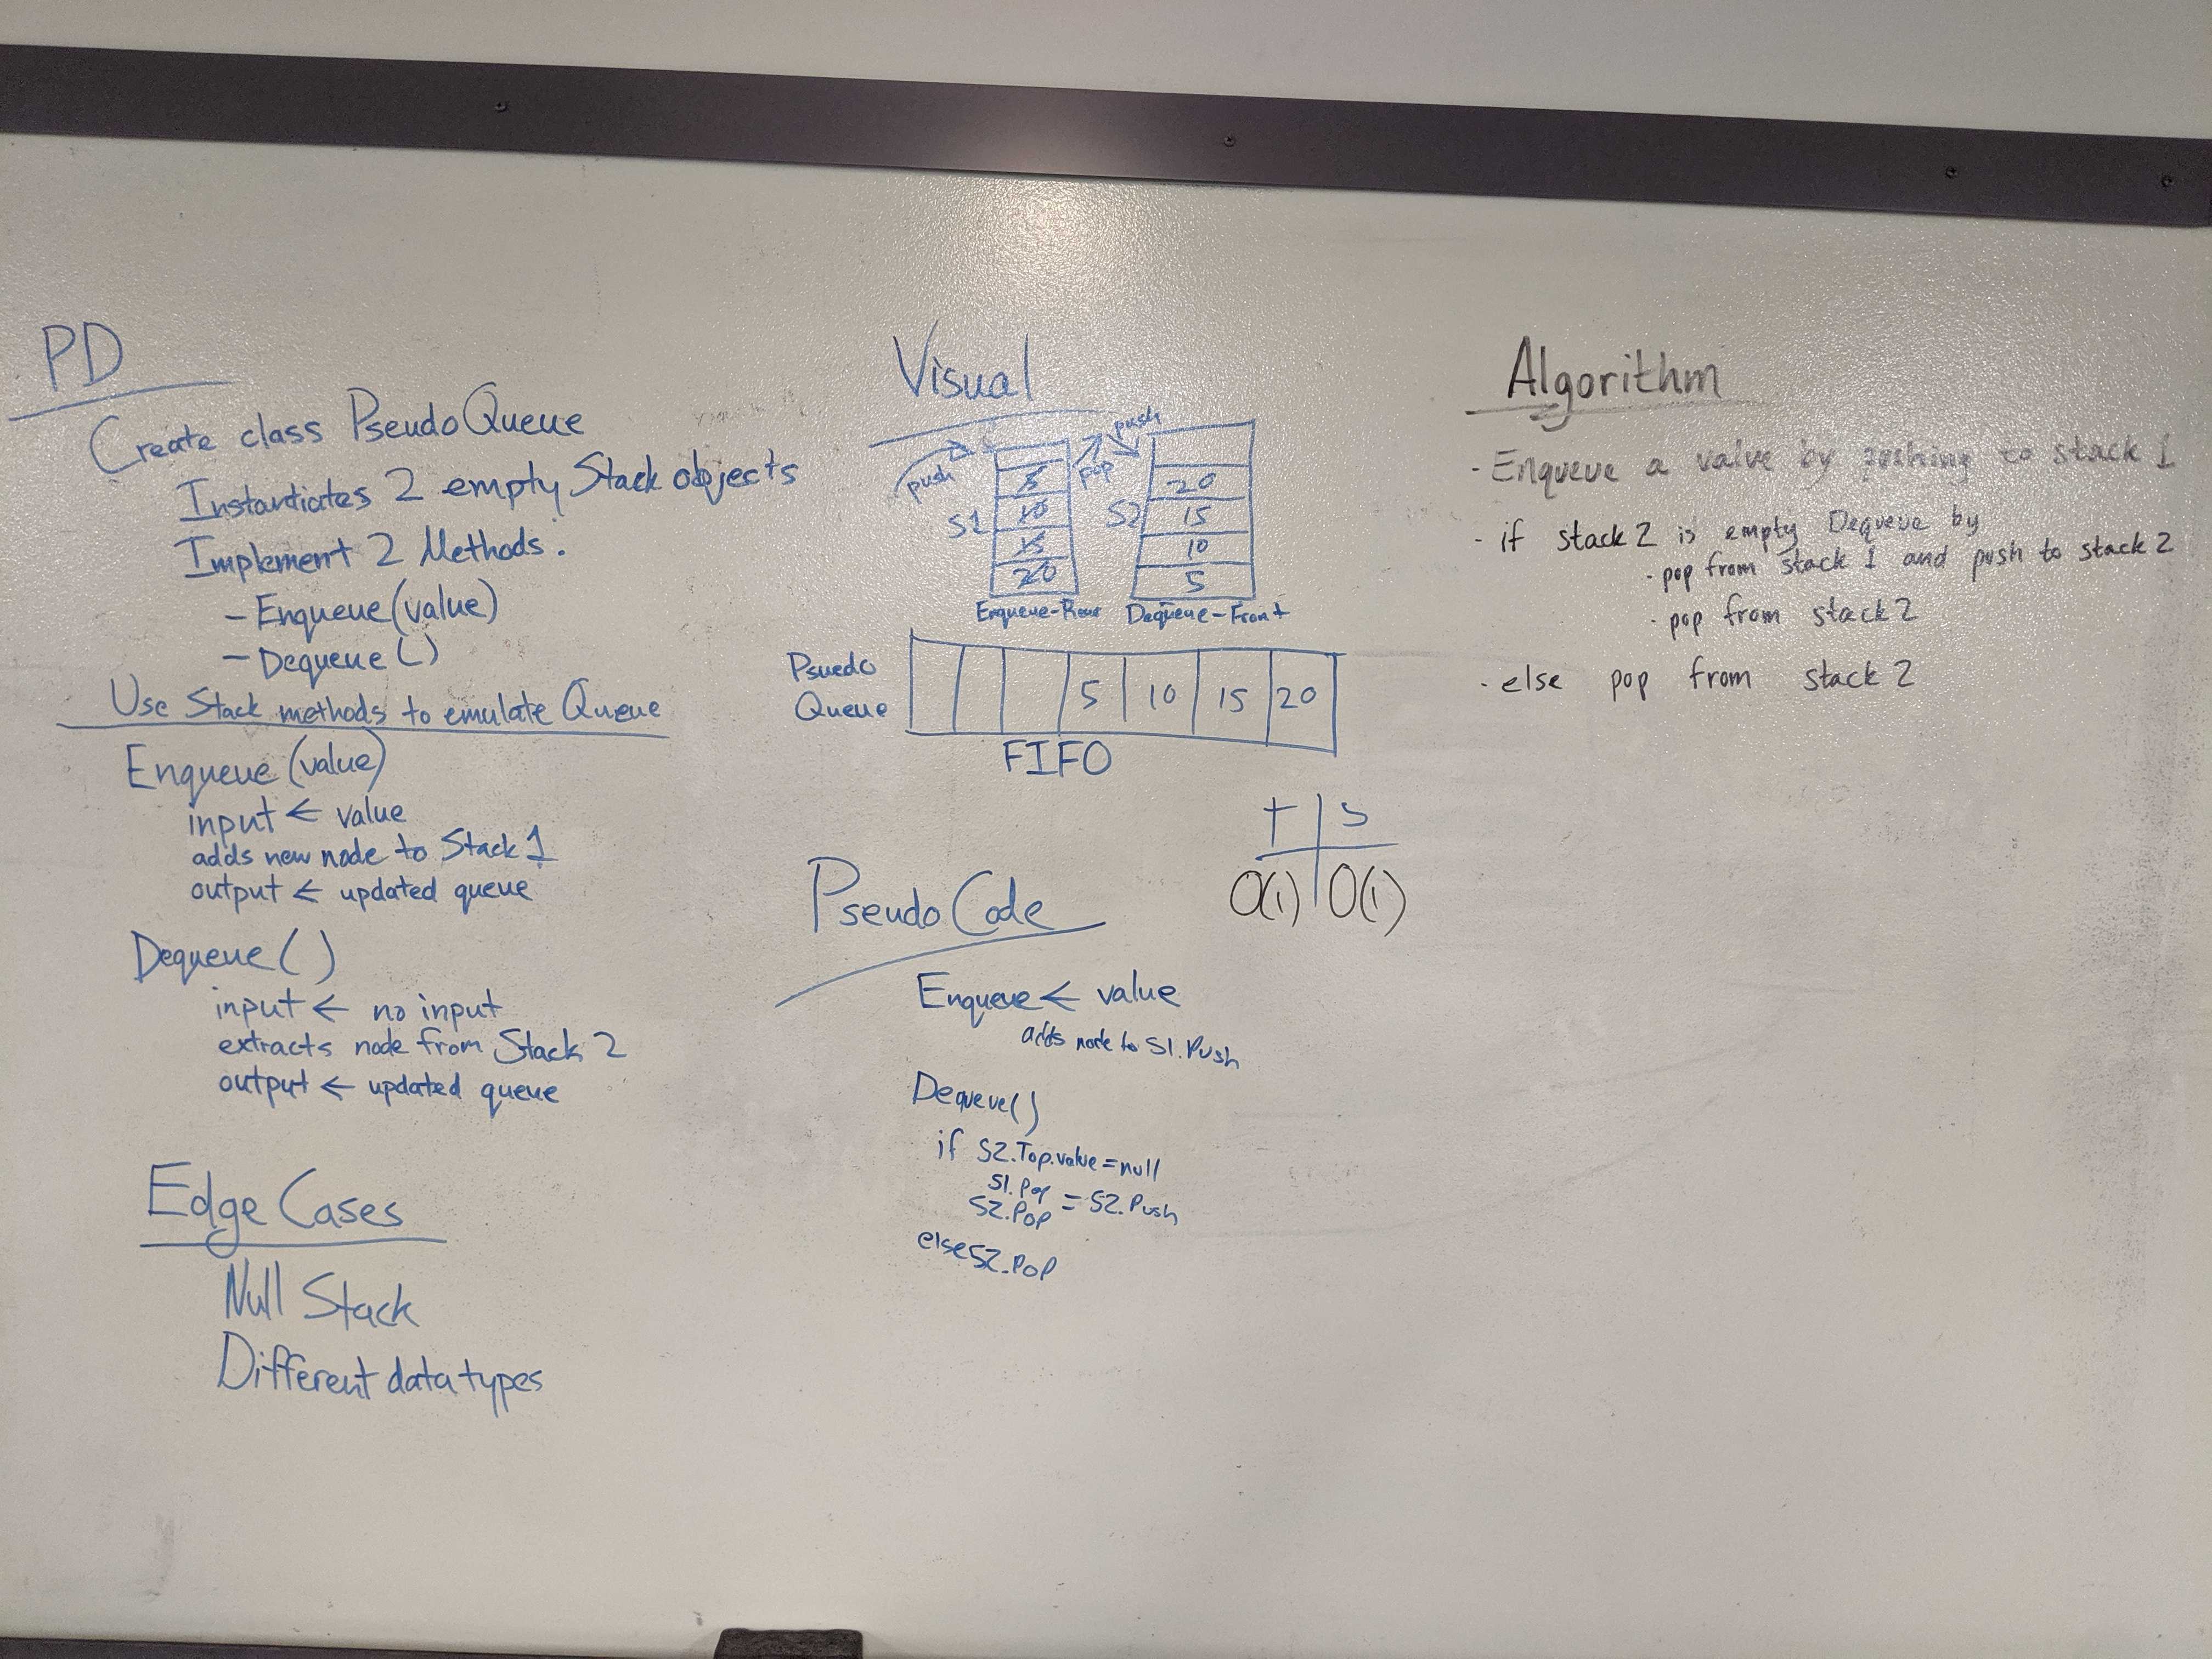 PD
Create class PseudoQueue
Instantiates 2 empty Stack objects
Implement 2 Methods.
- Enqueue(value)
- Dequeue()
Use Stack methods to emulate Queue
Enqueue(value)
input ← value
adds new node to Stack 1
output ← updated queue
Dequeue()
input ← no input
extracts node from Stack 2
output ← updated queue
Edge Cases
Null Stack
Different data types
Visual
push
pop
push
S1
5
10
15
20
Enqueue-Rear
S2
20
15
10
5
Dequeue-Front
Psuedo
Queue
5 10 15 20
FIFO
T S
O(1) O(1)
PseudoCode
Enqueue ← value
adds node to S1.Push
Dequeue()
if S2.Top.value=null
S1.Pop = S2.Push
S2.Pop
else S2.Pop
Algorithm
- Enqueue a value by pushing to stack 1
- if stack 2 is empty Dequeue by
· pop from stack 1 and push to stack 2
· pop from stack 2
- else pop from stack 2